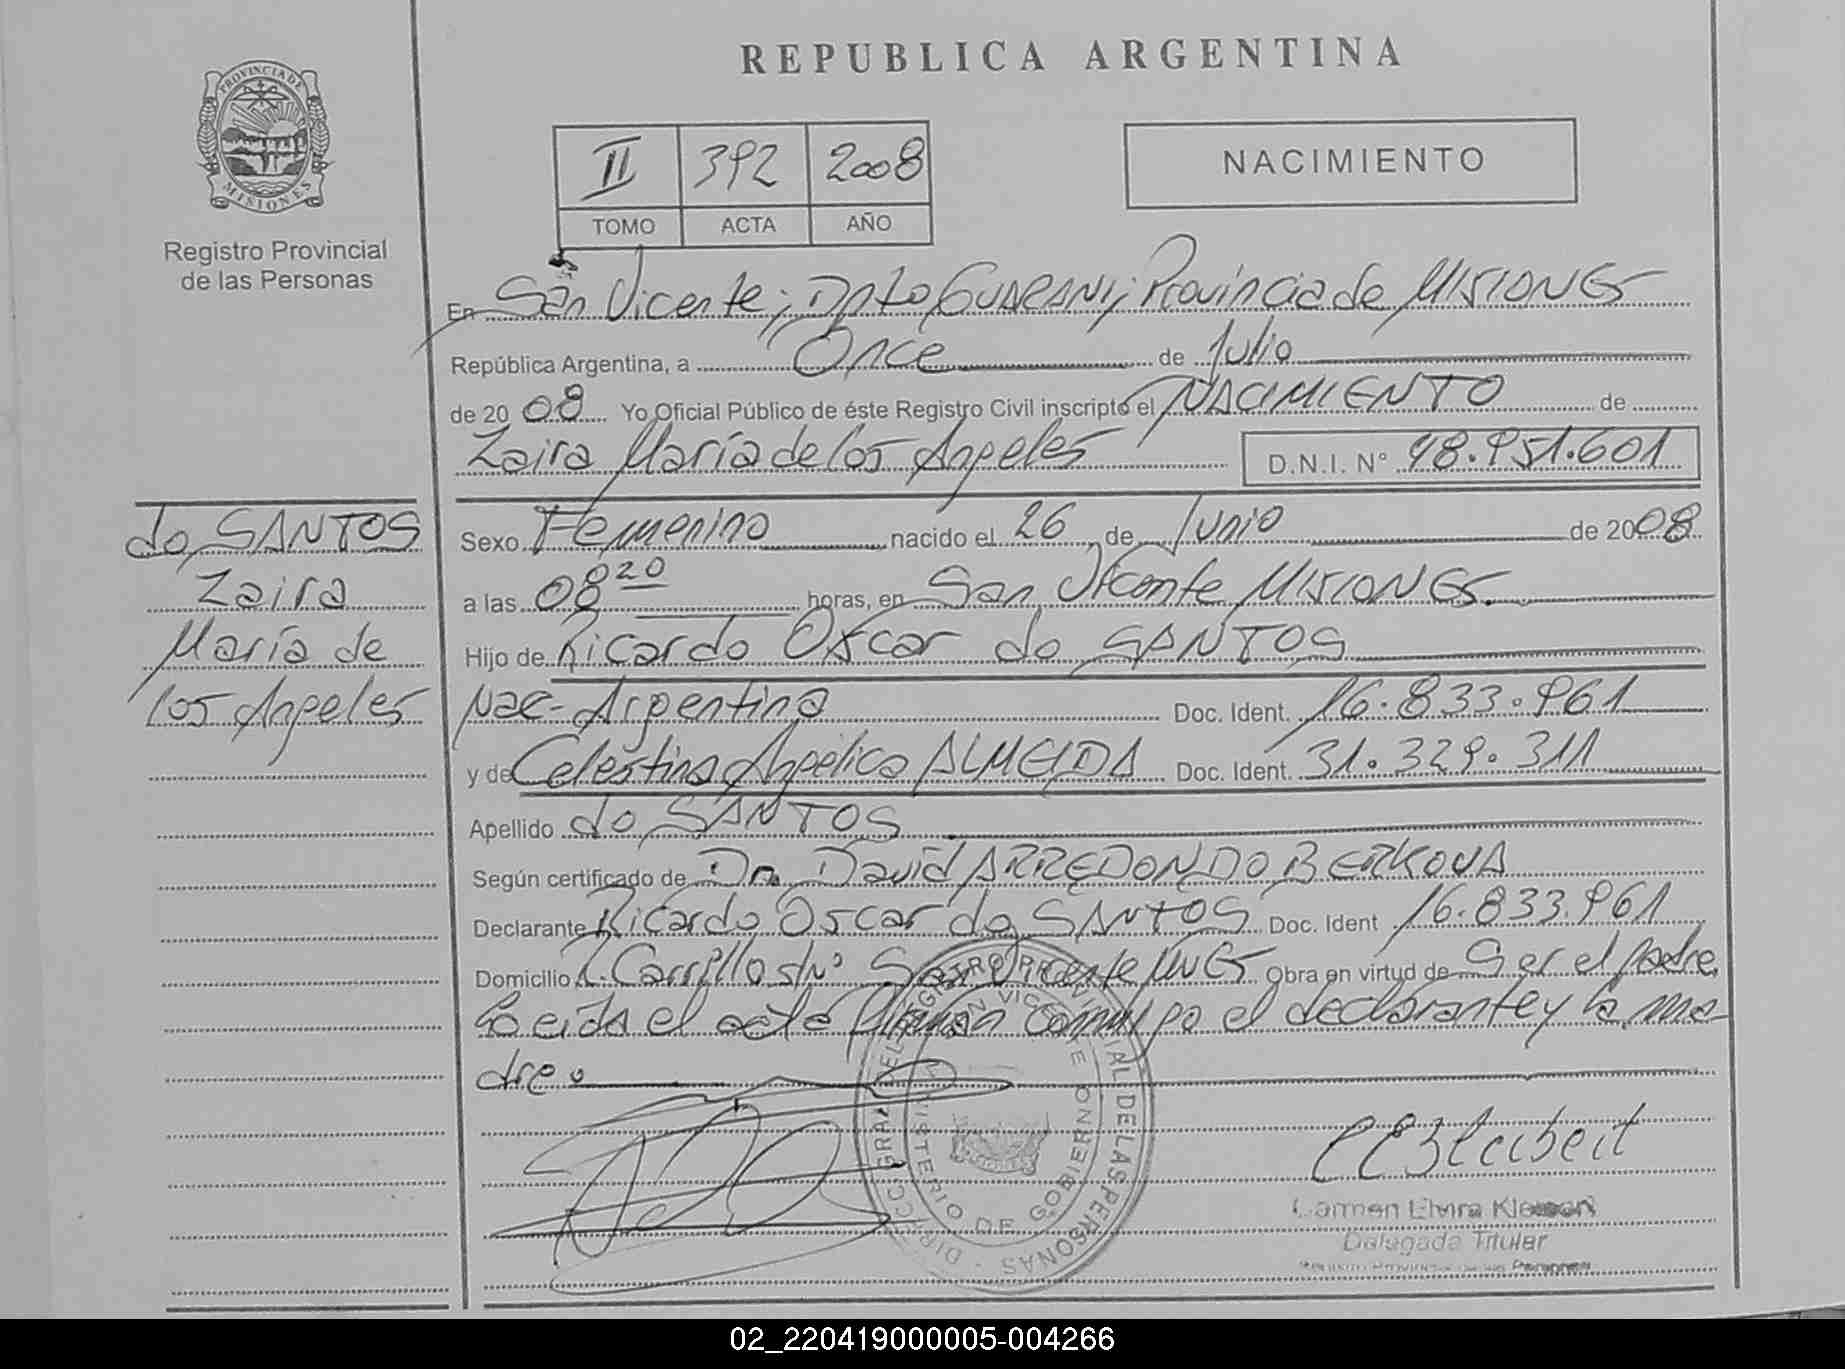 REPUBLICA ARGENTINA
PROVINCIA DE MISIONES
Registro Provincial
de las Personas
II 392 2008
TOMO ACTA AÑO
NACIMIENTO
En San Vicente; Dpto GUARANI; Provincia de MISIONES
República Argentina, a Once de Julio
de 20 08 Yo Oficial Público de éste Registro Civil inscripto el NACIMIENTO de
Zaira María de los Angeles D.N.I. N° 48.951.601
do SANTOS
Zaira
María de
los Angeles
Sexo Femenino nacido el 26 de Junio de 2008
a las 08 20 horas, en San Vicente MISIONES.
Hijo de Ricardo Oscar do SANTOS
Nac- Argentina Doc. Ident. 16.833.961
y de Celestina Angélica ALMEIDA Doc. Ident. 31.329.311
Apellido do SANTOS
Según certificado de Dr. David ARREDONDO BERKOVA
Declarante Ricardo Oscar do SANTOS Doc. Ident 16.833.961
Domicilio R. Carrillo s/nº San Vicente MNES Obra en virtud de Ser el padre
el acta firman conmigo el declarante y la ma-
dre.
REGISTRO PROVINCIAL DE LAS PERSONAS
SAN VICENTE
MINISTERIO DE GOBIERNO
Carmen Elvira
Delegada Titular
Registro Provincial de las Personas
02_220419000005-004266